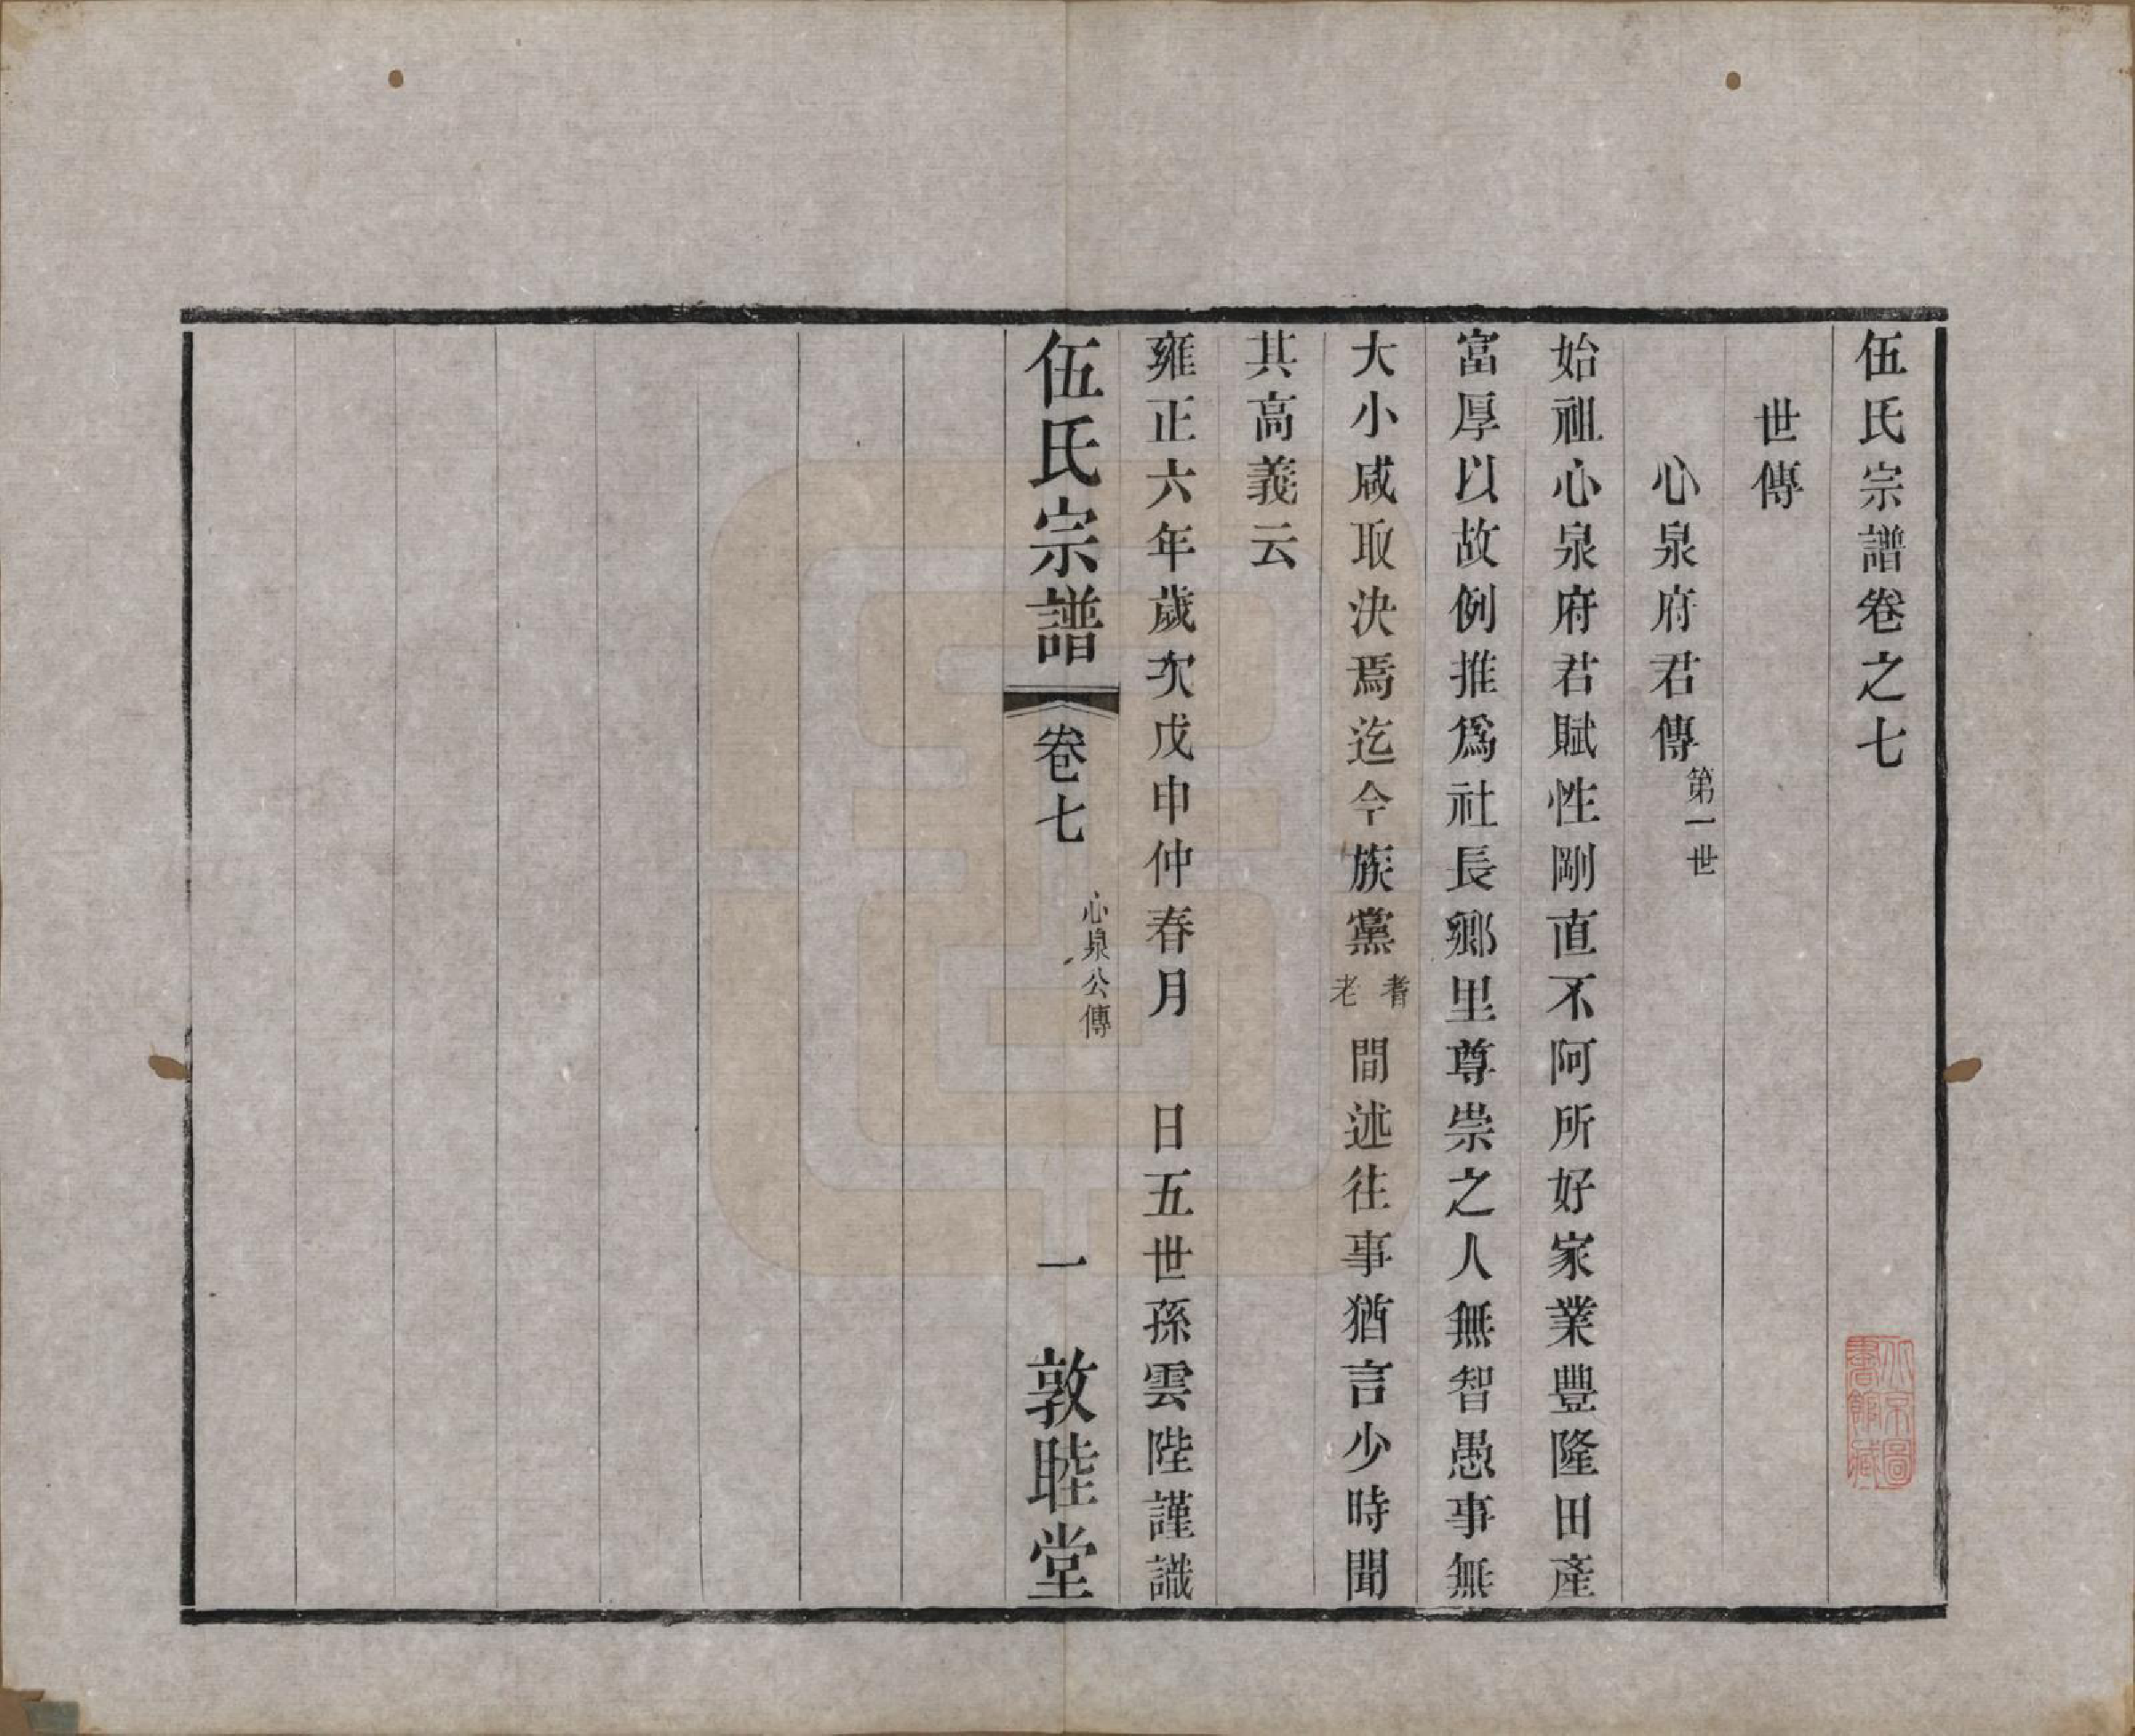 伍氏宗譜卷之七
世傳
心泉府君傳第一世
始祖心泉府君賦性剛直不阿所好家業豐隆田產
富厚以故例推爲社長鄉里尊崇之人無智愚事無
大小咸取決焉迄今族黨耆老間述往事猶言少時聞
其高義云
雍正六年歲次戊申仲春月 日五世孫雲陛謹識
伍氏宗譜 卷七 心泉公傳 一 敦睦堂
北京圖書館藏